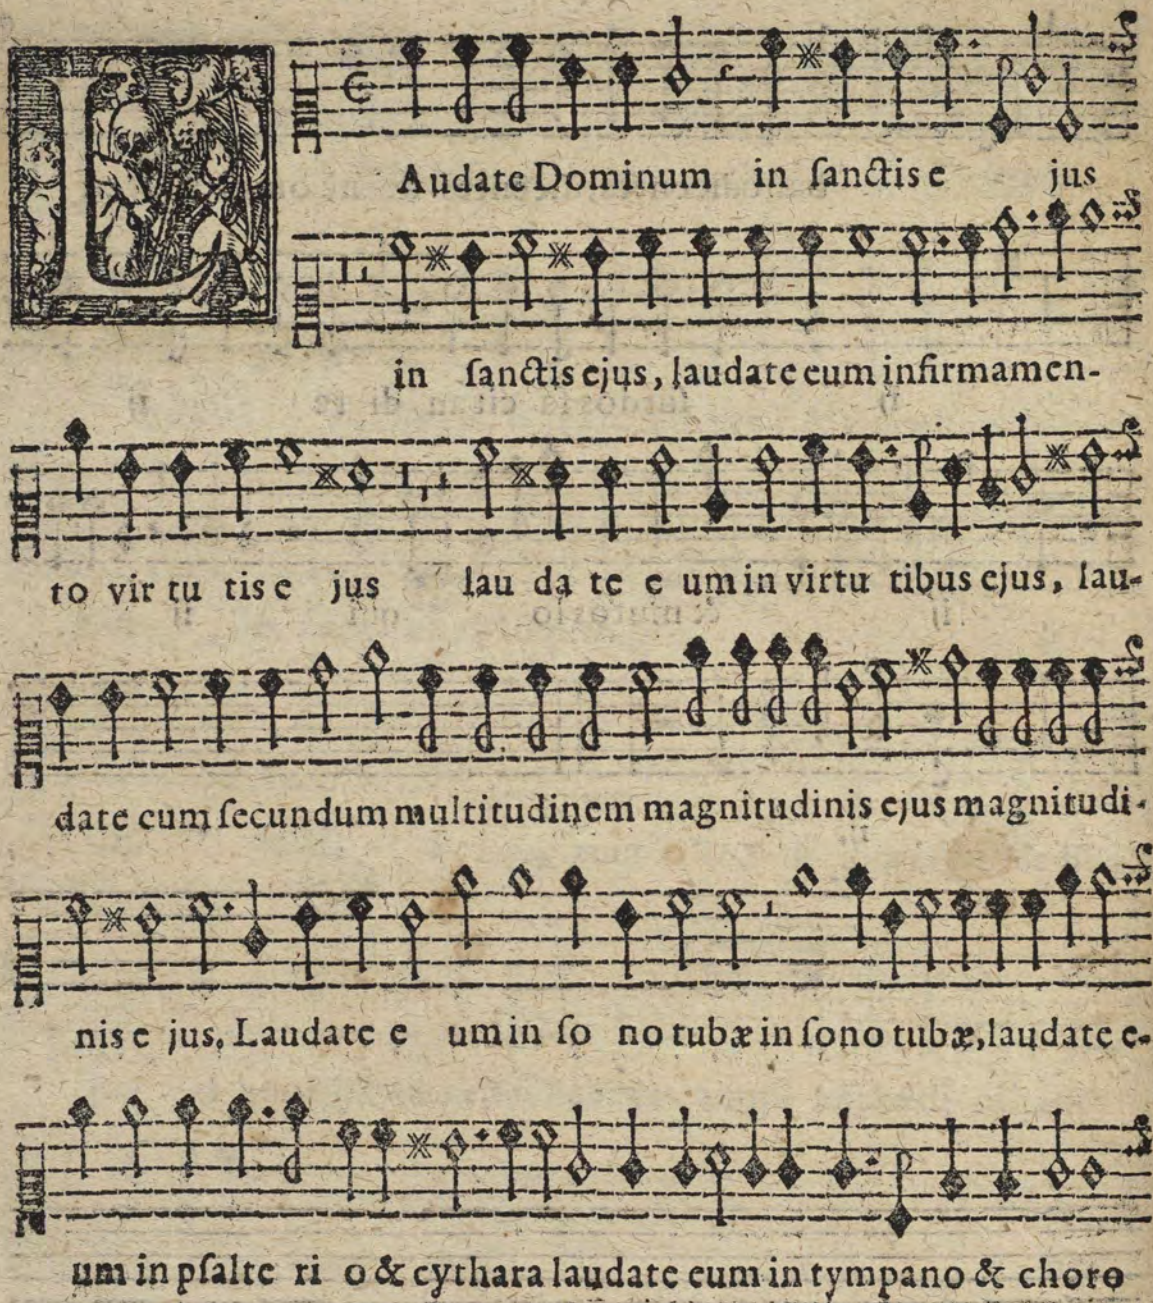 LAudate Dominum in ſanctis e jus
in ſanctis ejus, laudate eum infirmamen-
to vir tu tis e jus lau da te e um in virtu tibus ejus, lau-
date eum ſecundum multitudinem magnitudinis ejus magnitudi-
nis e jus, Laudate e um in ſo no tubæ in ſono tubæ, laudate e-
um in pſalte ri o & cythara laudate eum in tympano & choro